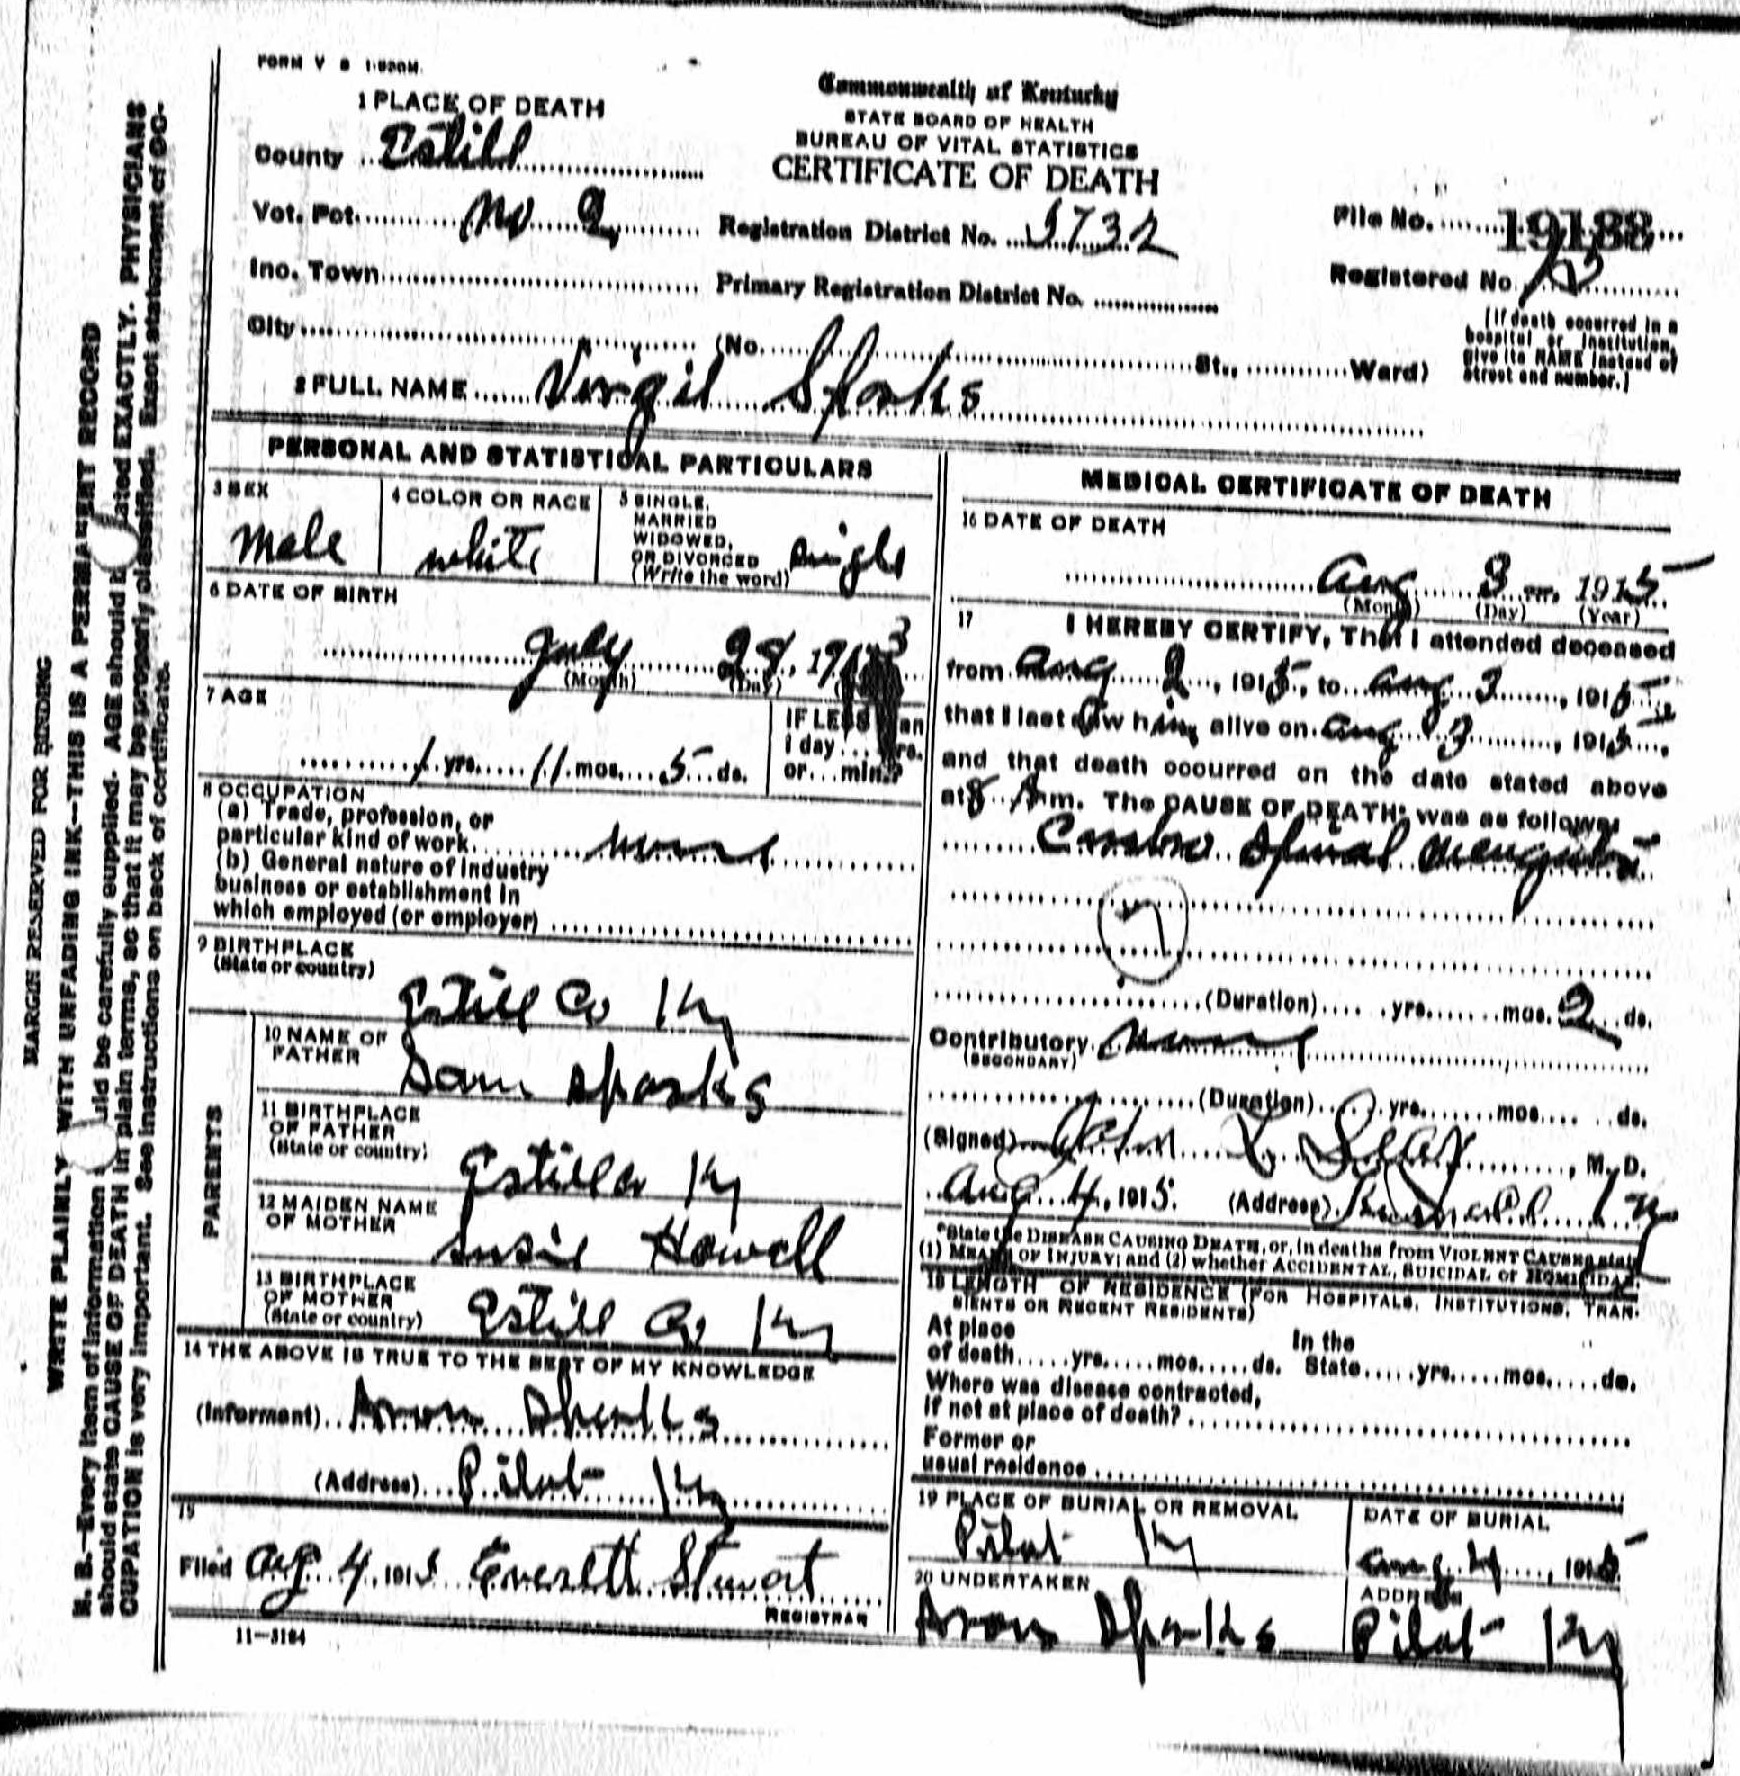 FORM V S 1-500M.
Commonwealth of Kentucky
STATE BOARD OF HEALTH
BUREAU OF VITAL STATISTICS
CERTIFICATE OF DEATH
1 PLACE OF DEATH
County Estill
Vot. Pct. No 2
Registration District No. 3732
File No. 19188
Inc. Town
Primary Registration District No.
Registered No
City (No. St., Ward)
(If death occurred in a
hospital or institution,
give its NAME instead of
street and number.)
2 FULL NAME Virgil Sparks
PERSONAL AND STATISTICAL PARTICULARS
3 SEX
male
4 COLOR OR RACE
white
5 SINGLE,
MARRIED
WIDOWED,
OR DIVORCED
(Write the word)
single
6 DATE OF BIRTH
July 28, 1913
(Month) (Day)
7 AGE
1 yrs. 11 mos. 5 ds.
IF LESS than
1 day hrs.
or min.?
8 OCCUPATION
(a) Trade, profession, or
particular kind of work none
(b) General nature of industry
business or establishment in
which employed (or employer)
9 BIRTHPLACE
(State or country)
Estill Co Ky
PARENTS
10 NAME OF
FATHER
Sam Sparks
11 BIRTHPLACE
OF FATHER
(State or country)
Estill Co Ky
12 MAIDEN NAME
OF MOTHER
Susie Howell
13 BIRTHPLACE
OF MOTHER
(State or country)
Estill Co Ky
14 THE ABOVE IS TRUE TO THE BEST OF MY KNOWLEDGE
(Informant) Aron Sparks
(Address) Pilot Ky
15
Filed Aug 4, 1915 Everett Stuart
REGISTRAR
11—3184
MEDICAL CERTIFICATE OF DEATH
16 DATE OF DEATH
Aug 3, 1915
(Month) (Day) (Year)
17 I HEREBY CERTIFY, That I attended deceased
from Aug 2, 1915, to Aug 3, 1915
that I last saw him alive on Aug 3, 1915,
and that death occurred on the date stated above
at 8 A m. The CAUSE OF DEATH* was as follows:
Cerebro Spinal Meningitis
7
(Duration) yrs. mos. 2 ds.
Contributory none
(SECONDARY)
(Duration) yrs. mos. ds.
(Signed) M. D.
Aug 4, 1915. (Address) Ky
*State the DISEASE CAUSING DEATH, or, in deaths from VIOLENT CAUSES state
(1) MEANS OF INJURY; and (2) whether ACCIDENTAL, SUICIDAL or HOMICIDAL.
18 LENGTH OF RESIDENCE (FOR HOSPITALS, INSTITUTIONS, TRAN-
SIENTS OR RECENT RESIDENTS)
At place In the
of death yrs. mos. ds. State yrs. mos. ds.
Where was disease contracted,
if not at place of death?
Former or
usual residence
19 PLACE OF BURIAL OR REMOVAL
Pilot Ky
DATE OF BURIAL
Aug 4, 1915
20 UNDERTAKER
Aron Sparks
ADDRESS
Pilot Ky
MARGIN RESERVED FOR BINDING
WRITE PLAINLY WITH UNFADING INK—THIS IS A PERMANENT RECORD
N. B.—Every item of information should be carefully supplied. AGE should be stated EXACTLY. PHYSICIANS
should state CAUSE OF DEATH in plain terms, so that it may be properly classified. Exact statement of OC-
CUPATION is very important. See instructions on back of certificate.